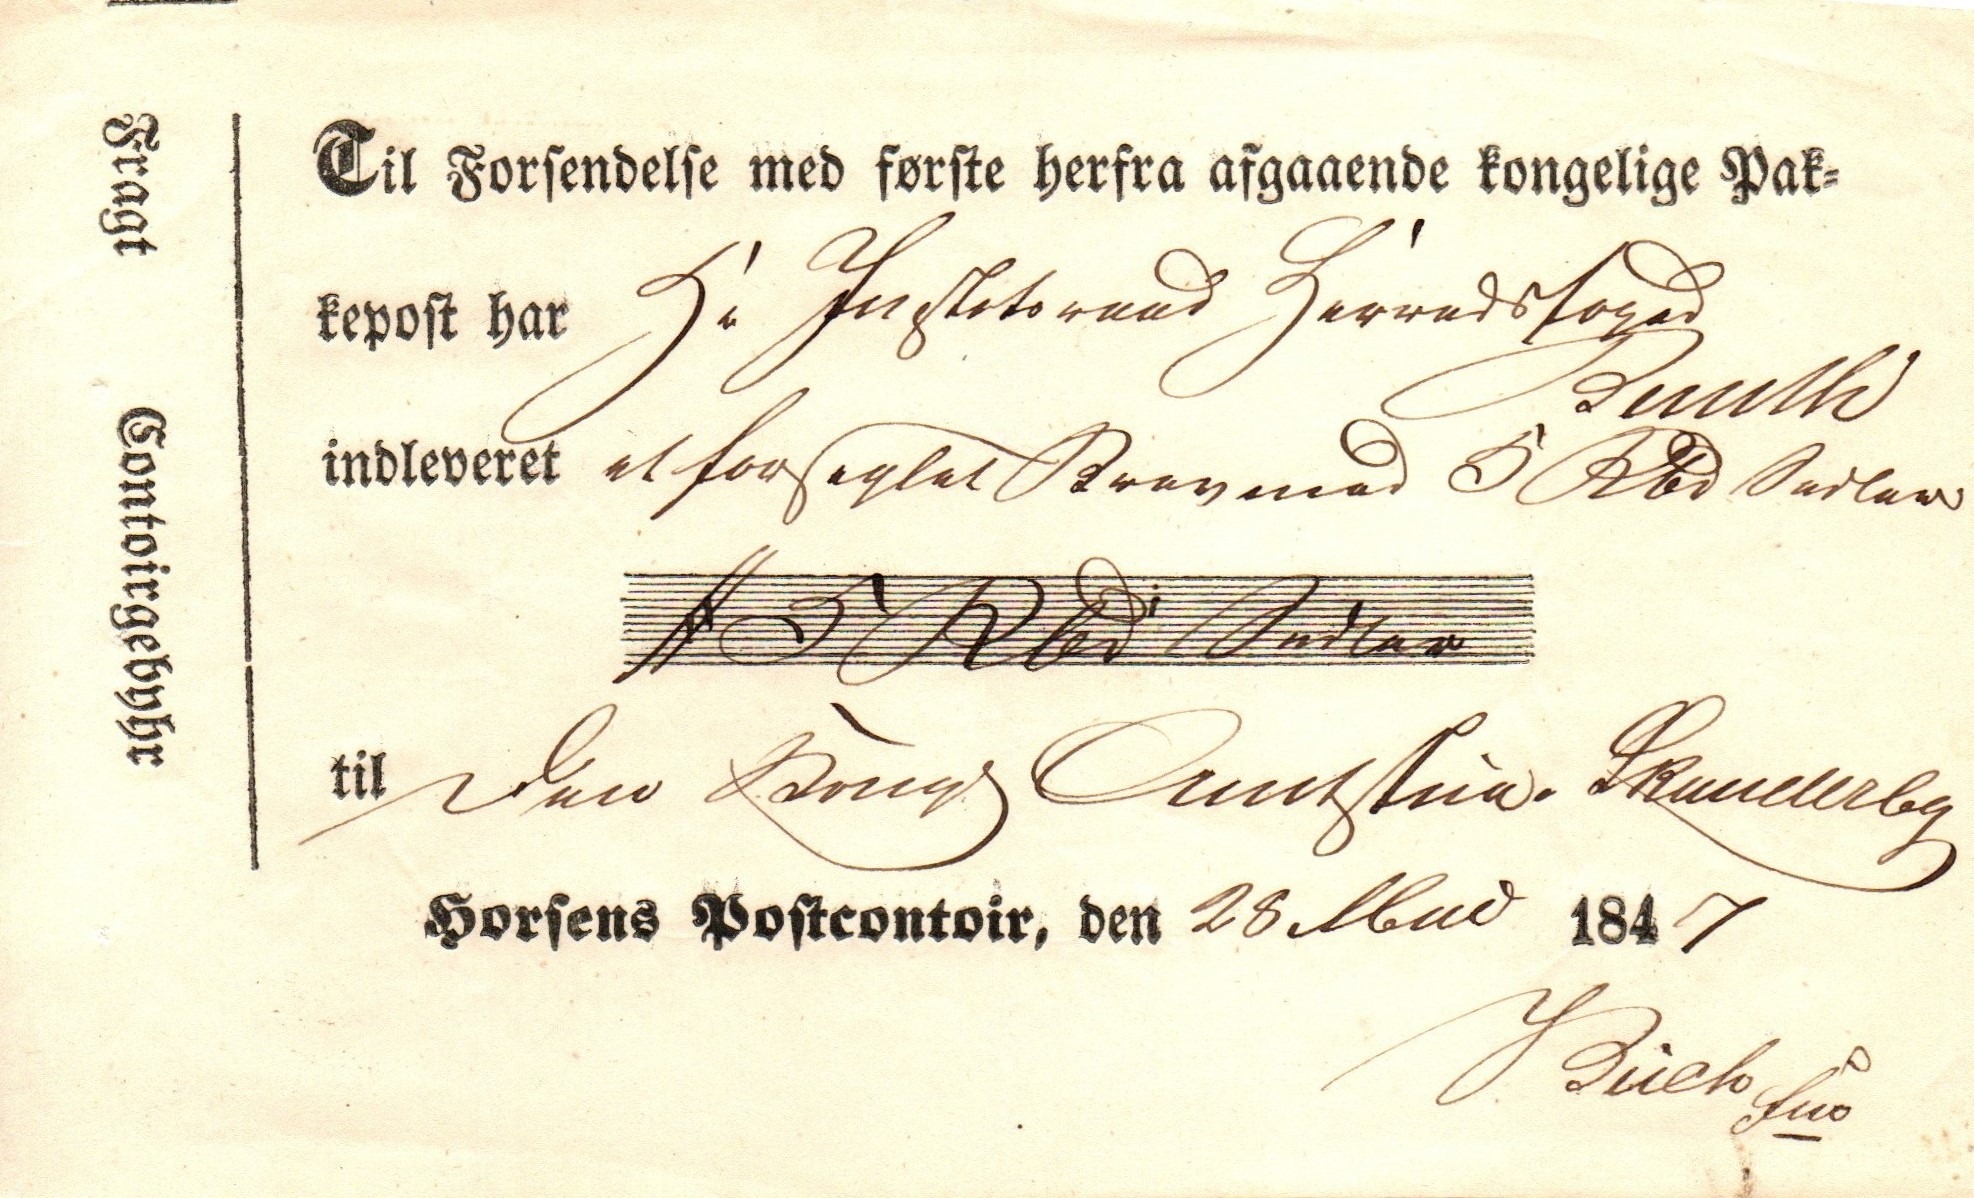 Fragt
Contoirgebyhr
Til Forsendelse med første herfra afgaaende kongelige Pak=
kepost har Hr Justitsraad Herredsfoged
indleveret et forseglet Brev med 5 Rbd Sedler
5 Rbd Sedler
til Den Kongl Amtstue. Skanderbg
Horsens Postcontoir, den 28 Mai 1847